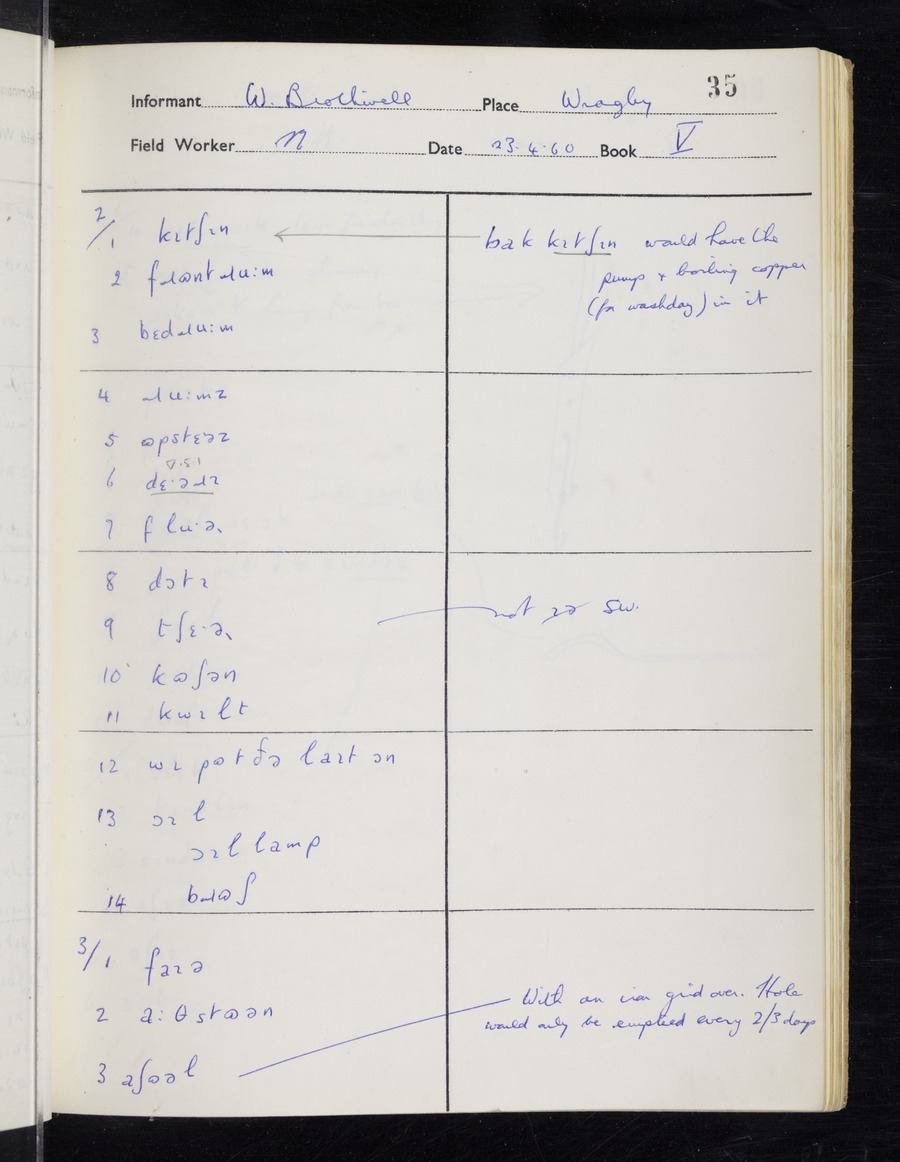 35
Informant W. Brothwell Place Wragby
Field Worker N Date 23.4.60 Book V
2/1 kɪtʃɪn bak kɪtʃɪn would have the
pump & boiling copper
(for washday) in it
2 fɹɷntɹuːm
3 bɛdɹuːm
4 ɹuːmz
5 ɷpstɛəz
6 dɛ·əɹɪ
V.5.1
7 fluˑə
8 dɔtɪ
9 tʃɛˑə not ɪə sw.
10 kɷʃən
11 kwɪlt
12 wɪ pɷt ðə laɪt ɒn
13 ɔɪl
ɔɪl lamp
14 bɹɷʃ
3/1 faɪə
2 aːθstɷən
3 aʃɷəl
With an iron grid over. Hole
would only be emptied every 2/3 days